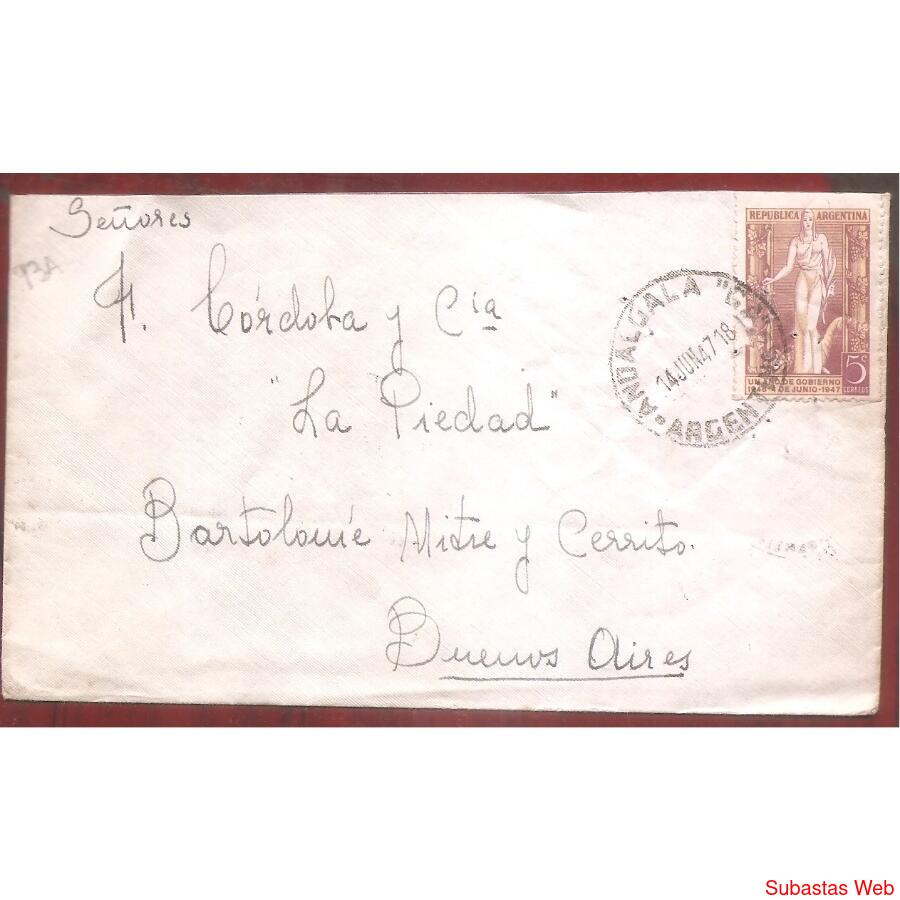 Señores
F. Córdoba y Cía
"La Piedad"
Bartolomé Mitre y Cerrito.
Buenos Aires
REPUBLICA ARGENTINA
5c
CORREOS
UN AÑO DE GOBIERNO
1946-4 DE JUNIO-1947
ANDALGALA
14JUN47 18
ARGENTINA
Subastas Web